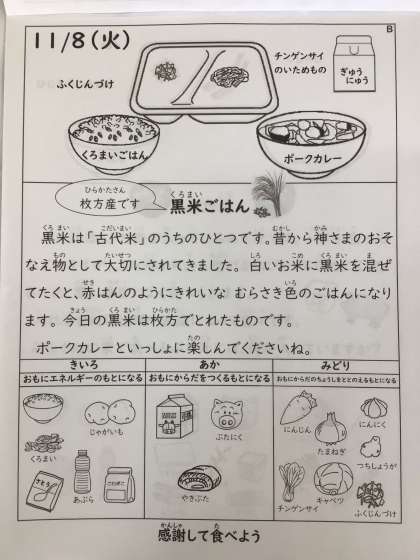 11/8(火)
B
ふくじんづけ
チンゲンサイ
のいためもの
ぎゅう
にゅう
くろまいごはん
ポークカレー
ひらかたさん
枚方産です
くろまい
黒米ごはん
くろ まい こだいまい むかし かみ
黒米は「古代米」のうちのひとつです。昔から神さまのおそ
もの たいせつ しろ こめ くろ まい ま
なえ物として大切にされてきました。白いお米に黒米を混ぜ
せき いろ
てたくと、赤はんのようにきれいな むらさき色のごはんになり
きょう くろ まい ひらかた
ます。今日の黒米は枚方でとれたものです。
たの
ポークカレーといっしょに楽しんでくださいね。
きいろ
あか
みどり
おもにエネルギーのもとになる
おもにからだをつくるもとになる
おもにからだのちょうしをととのえるもとになる
じゃがいも
くろまい
さとう
あぶら
こむぎこ
ぶたにく
やきぶた
にんじん
たまねぎ
にんにく
つちしょうが
チンゲンサイ
キャベツ
ふくじんづけ
かんしゃ た
感謝して食べよう